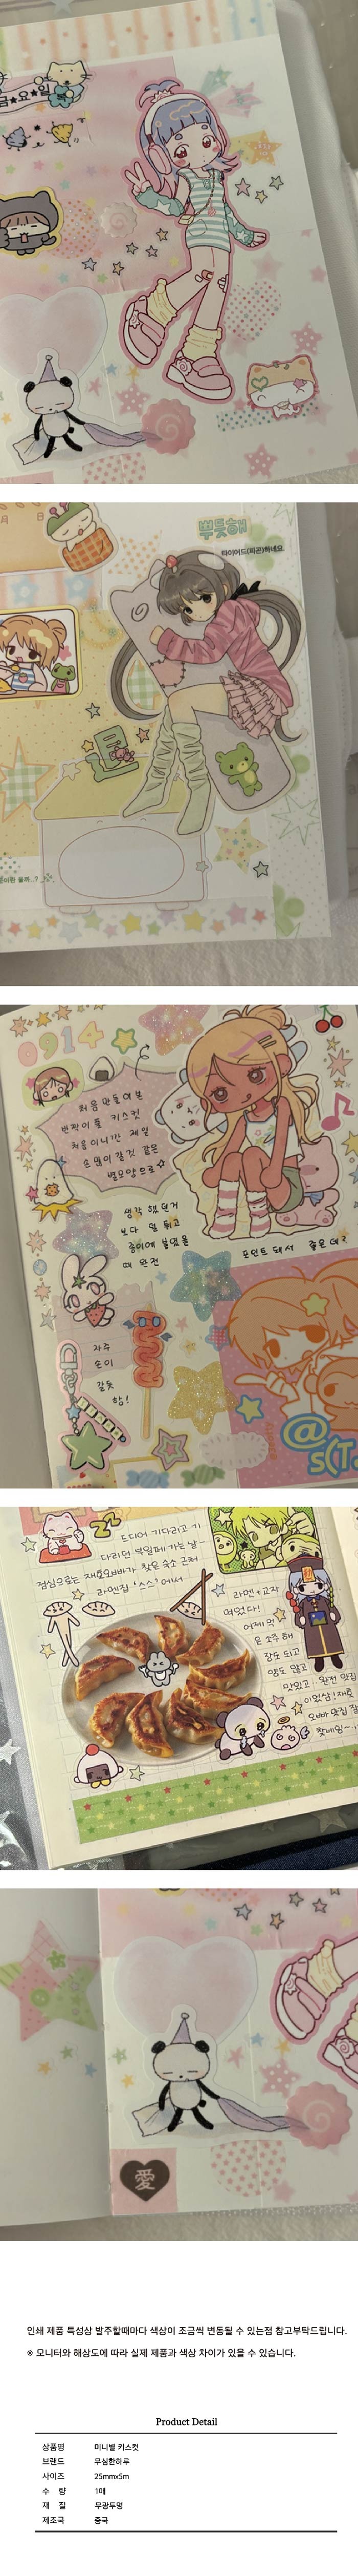 금★요★일
月
日
뿌듯해
타이어드(피곤)하네요
0914
처음 만들어본
반짝이풀 키스컷
처음이니깐 제일
손 많이 갈것 같은
별모양으로☆
생각 했던거
보다 덜 튀고
종이에 붙였을
때 완전
포인트 돼서 좋은데?
자주
손이
갈듯
함!
@
드디어 기다리고 기
다리던 박일페 가는 날~
점심으로는 재호오빠가 찾은 숙소 근처
라멘집 '스스' 에서
라멘+교자
먹었다!
어제 먹
은 소주 해
장도 되고
양도 많고
맛있고 완전 맛집
이었심! 재호
오빠 맛집 잘
찾네잉~
愛
인쇄 제품 특성상 발주할때마다 색상이 조금씩 변동될 수 있는점 참고부탁드립니다.
※ 모니터와 해상도에 따라 실제 제품과 색상 차이가 있을 수 있습니다.
Product Detail
상품명 미니별 키스컷
브랜드 무심한하루
사이즈 25mmx5m
수 량 1매
재 질 무광투명
제조국 중국